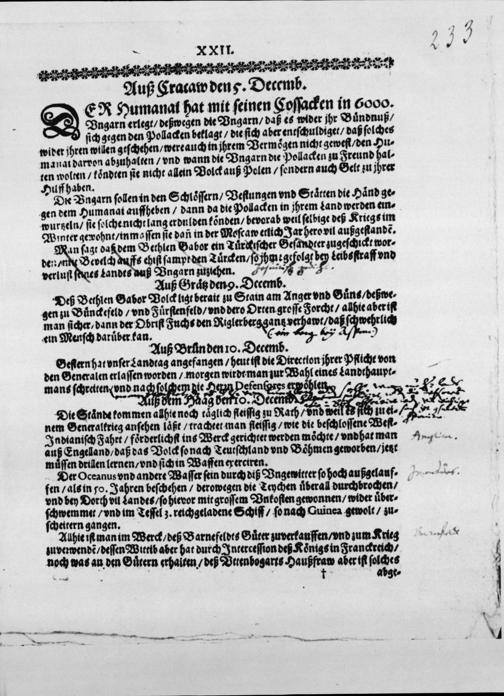 XXII.
233
Auß Cracaw den 5. Decemb.
DER Humanai hat mit seinen Cossacken in 6000.
Vngarn erlegt/ deßwegen die Vngarn/ daß es wider jhr Bündnuß/
sich gegen den Pollacken beklagt/ die sich aber entschuldiget/ daß solches
wider jhren willen geschehen/ were auch in jhrem Vermögen nicht gewest/ den Hu-
manai darvon abzuhalten/ vnd wann die Vngarn die Pollacken zu Freund hal-
ten wolten/ köndten sie nicht allein Volck auß Polen/ sondern auch Gelt zu jhrer
Hülf haben.
Die Vngarn sollen in den Schlössern/ Vestungen vnd Stätten die Händ ge-
gen dem Humanai auffheben/ dann da die Pollacken in jhrem Land werden ein-
wurtzeln/ sie solche nicht lang erdulden könden/ bevorab weil selbige deß Kriegs im
Winter gewohnt/ inmassen sie dañ in der Moscaw etlich Jar her ovil außgestandẽ.
Man sagt daß dem Bethlen Gabor ein Türckischer Gesandter zugeschickt wor-
den/ mit Bevelch auffs ehist sampt den Türcken/ so jhme gefolgt bey Leibsstraff vnd
verlust seines Landes auß Vngarn zuziehen.
Auß Grätz den 9. Decemb.
Deß Bethlen Gabor Volck ligt berait zu Stain am Anger vnd Güns/ deßwe-
gen zu Bünckefeld/ vnd Fürstenfeld/ vnd dero Orten grosse Forcht/ allhie aber ist
man sicher/ dann der Obrist Fuchs den Riglerberg gantz verhawt/ daß schwehrlich
ein Mensch darüber kan.
Auß Brün den 10. Decemb.
Gestern hat vnser Landrag angefangen/ heut ist die Direction jhrer Pflicht von
den Generalen erlassen worden/ morgen wirdt man zur Wahl eines Landthaupt-
mans schreiten/ vnd nach solchem die Herrn Defensores erwöhlen.
Auß dem Haag den 10. Decemb.
Die Stände kommen allhie noch täglich fleissig zu Rath/ vnd weil es sich zu ei-
nem Generalkrieg ansehen läßt/ trachtet man fleissig/ wie die beschlossene West-
Indianisch Fahrt/ förderlichst ins Werck gerichtet werden möchte/ vnd hat man
auß Engelland/ daß das Volck so nach Teutschland vnd Böhmen geworben/ jetzt
müssen drillen lernen/ vnd sich in Waffen exerciren.
Der Oceanus vnd andere Wasser sein durch diß Vngewitter so hoch außgelauf-
fen/ als in 50. Jahren beschehen/ derowegen die Teychen überall durchbrochen/
vnd bey Dorth vil Landes/ so hievor mit grossem Vnkosten gewonnen/ wider über-
schwemmet/ vnd im Tessel 3. reichgeladene Schiff/ so nach Guinea gewolt/ zu-
scheitern gangen.
Allhie ist man im Werck/ deß Barnefeldes Güter zuverkauffen/ vnd zum Krieg
zuverwendẽ/ dessen Wittib aber hat durch Intercession deß Königs in Franckreich/
noch was an den Gütern erhalten/ deß Vttenbogarts Haußfraw aber ist solches
abge-